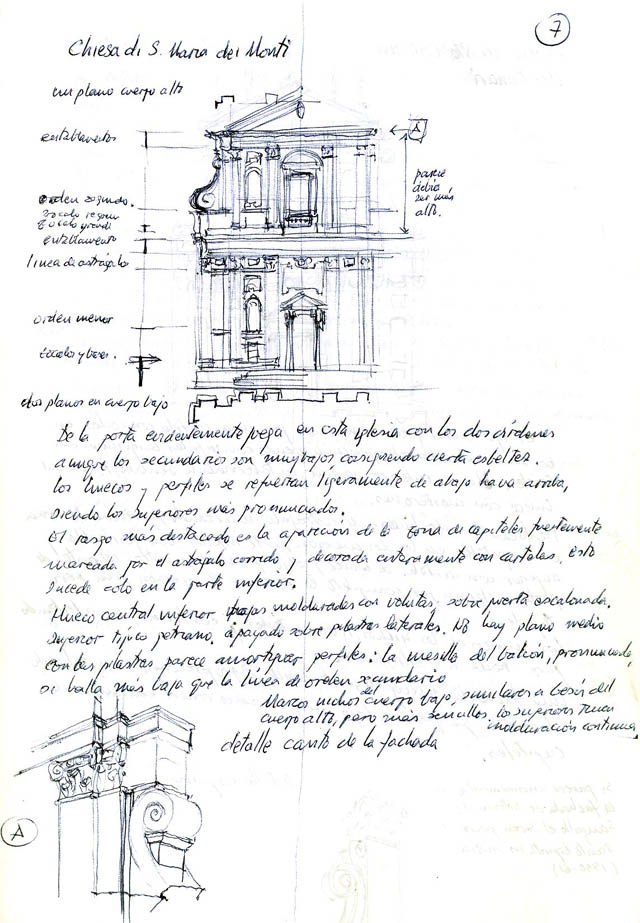 7
Chiesa di S. Maria dei Monti
un plano cuerpo alto
entablamento
A
parece
debía
ser más
alto.
orden segundo.
zócalo
zócalo grande
entablamento
linea de astrágalo
orden menor
zócalo y basas.
dos planos en cuerpo bajo
De la porta evidentemente juega en esta iglesia con los dos órdenes
aunque los secundarios son muy bajos consiguiendo cierta esbeltez.
los huecos y perfiles se refuerzan ligeramente de abajo hacia arriba,
siendo los superiores más pronunciados.
El rasgo más destacado es la aparición de la zona de capiteles fuertemente
marcada por el astrágalo corrido y decorada enteramente con cartelas. Esto
sucede sólo en la parte inferior.
Hueco central inferior molduradas con volutas, sobre puerta escalonada.
Superior típico petriano. apoyado sobre pilastras laterales. No hay plano medio
con las pilastras parece amortiguar perfiles: la mesilla del balcón, pronunciada,
se halla más baja que la linea de orden secundario
Marcos nichos del cuerpo bajo, similares a los del
cuerpo alto, pero más sencillos, los superiores tienen
molduración continua.
detalle canto de la fachada
A